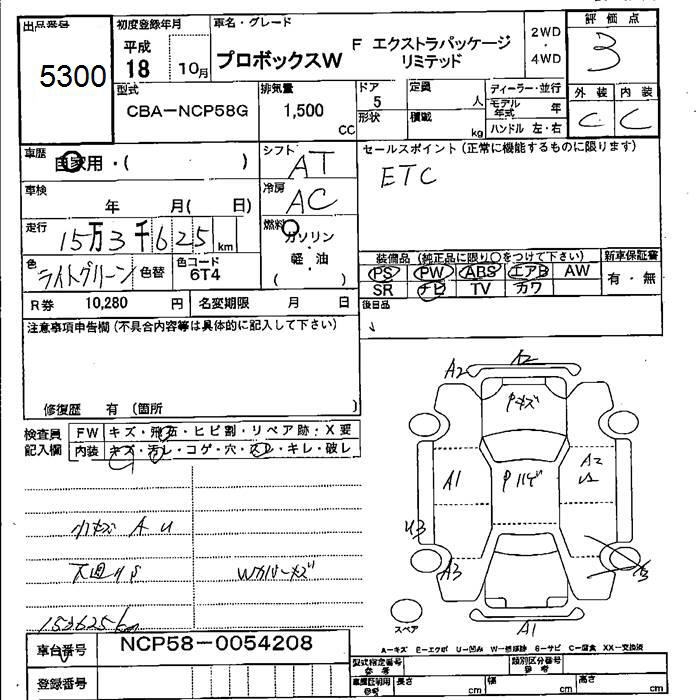 出品番号
5300
初度登録年月
平成
18 10月
車名・グレード
プロボックスW
F エクストラパッケージ
リミテッド
2WD
・
4WD
評価点
3
型式
CBA-NCP58G
排気量
1,500
CC
ドア
5
形状
定員
人
積載
kg
ディーラー・並行
モデル年式 年
ハンドル 左・右
外装 内装
C C
車歴
自家用・( )
シフト
AT
セールスポイント(正常に機能するものに限ります)
ETC
車検
年 月( 日)
冷房
AC
走行
15万3千625km
燃料
ガソリン
・
軽・油
( )
色
ライトグリーン
色替
色コード
6T4
装備品(純正品に限り○をつけて下さい)
PS PW ABS エアB AW
SR ナビ TV カワ
新車保証書
有・無
R券 10,280 円
名変期限 月 日
後日品
注意事項申告欄(不具合内容等は具体的に記入して下さい)
修復歴 有 (箇所 )
検査員
記入欄
FW キズ・飛石・ヒビ割・リペア跡・X要
内装 キズ・汚レ・コゲ・穴・スレ・キレ・破レ
小キズ A U
Wカバーキズ
153625km
A2
A2
Pキズ
A1
A2
US
U3
A3
A1
スペア
A-キズ E-エクボ U-凹み W-波 S-サビ C-腐食 XX-交換済
車台番号
NCP58-0054208
登録番号
型式指定番号
参考
類別区分番号
参考
参考
長さ cm
幅 cm
高さ cm